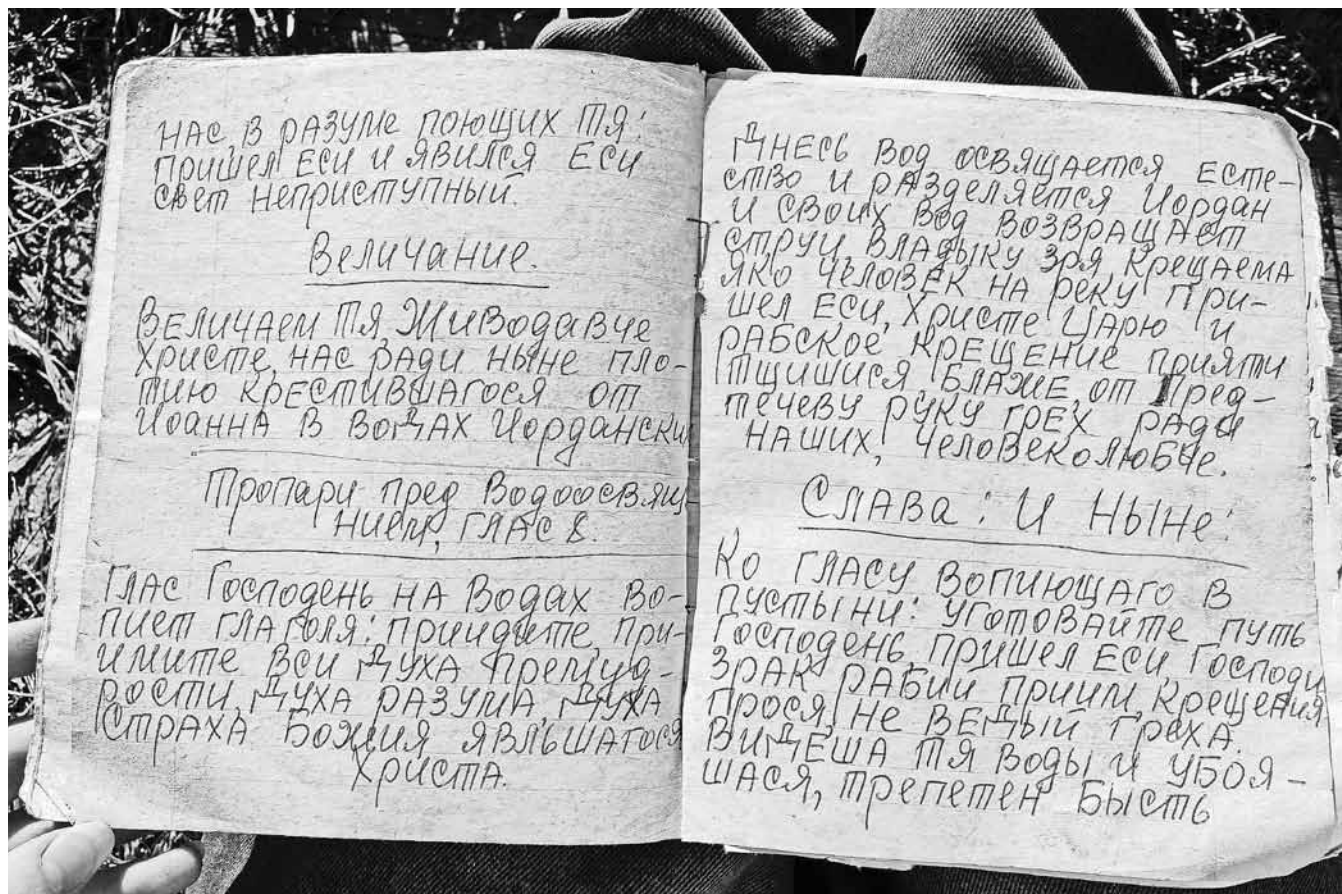 нас, в разуме поющих тя:
пришел еси и явился еси
свет неприступный.
Величание.
Величаем тя, Живодавче
Христе, нас ради ныне пло-
тию крестившагося от
Иоанна в водах Иордански
Тропари пред Водоосвящ-
нием, глас 8.
Глас Господень на Водах во-
пиет глаголя: приидите, при-
имите вси духа премуд-
рости, духа разума, духа
Страха Божия явльшагося
Христа.
Днесь вод освящается есте-
ство и разделяется Иордан
и своих вод возвращает
струи, Владыку зря крещаема
яко человек на реку при-
шел еси, Христе Царю и
рабское крещение прияти
тщишися, Блаже, от Пред-
течеву руку грех ради
наших, Человеколюбче.
Слава: И ныне:
Ко гласу вопиющаго в
пустыни: уготовайте путь
Господень, пришел еси, Господи,
зрак рабий приим, крещения
прося, не ведый греха.
Видеша тя воды и убоя-
шася, трепетен бысть